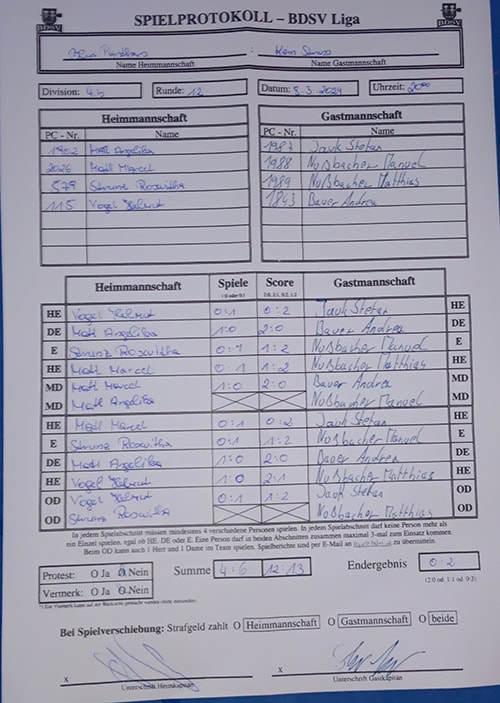 SPIELPROTOKOLL – BDSV Liga
BDSV BDSV
: Kein Stress
Name Heimmannschaft Name Gastmannschaft
Division: 4.b Runde: 12 Datum: 8.3.2024 Uhrzeit: 20⁰⁰
Heimmannschaft Gastmannschaft
PC - Nr. Name PC - Nr. Name
1902 Matl Angelika 1987 Jauk Stefan
2026 Matl Marcel 1988 Nußbacher Manuel
579 Strunz Roswitha 1989 Nußbacher Matthias
115 Vogel Helmut 1843 Bauer Andrea
Heimmannschaft Spiele Score Gastmannschaft
1:0 oder 0:1 2:0, 2:1, 0:2, 1:2
HE Vogel Helmut 0:1 0:2 Jauk Stefan HE
DE Matl Angelika 1:0 2:0 Bauer Andrea DE
E Strunz Roswitha 0:1 1:2 Nußbacher Manuel E
HE Matl Marcel 0:1 1:2 Nußbacher Matthias HE
MD Matl Marcel 1:0 2:0 Bauer Andrea MD
MD Matl Angelika Nußbacher Manuel MD
HE Matl Marcel 0:1 0:2 Jauk Stefan HE
E Strunz Roswitha 0:1 1:2 Nußbacher Manuel E
DE Matl Angelika 1:0 2:0 Bauer Andrea DE
HE Vogel Helmut 1:0 2:1 Nußbacher Matthias HE
OD Vogel Helmut 0:1 1:2 Jauk Stefan OD
OD Strunz Roswitha Nußbacher Matthias OD
In jedem Spielabschnitt müssen mindestens 4 verschiedene Personen spielen. In jedem Spielabschnitt darf keine Person mehr als
ein Einzel spielen, egal ob HE, DE oder E. Eine Person darf in beiden Abschnitten zusammen maximal 3-mal zum Einsatz kommen.
Beim OD kann auch 1 Herr und 1 Dame im Team spielen. Spielberichte sind per E-Mail an zu übermitteln.
Protest: O Ja O Nein Summe 4:6 12:13 Endergebnis 0:2
Vermerk: O Ja O Nein (2:0 od. 1:1 od. 0:2)
Bei Spielverschiebung: Strafgeld zahlt O Heimmannschaft O Gastmannschaft O beide
x x
Unterschrift Heimkapitän Unterschrift Gastkapitän